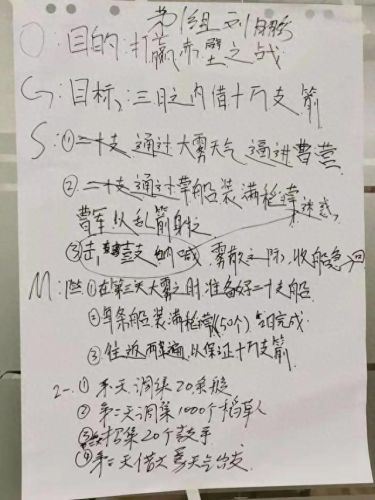 第1组刘
O:目的:打赢赤壁之战
G:目标:三日之内借十万支箭
S:①二十支 通过大雾天气逼进曹营
②二十支通过草船装满稻草迷惑
曹军以乱箭射之
③击鼓呐喊,雾散之际,收船急回
M: ①在第三天大雾之时,准备好二十支船
②每条船装满稻草(50个)当日完成
③往返两遍,以保证十万支箭
2-.①第一天调集20条船
②第二天调集1000个稻草人
③招集20个鼓手
④第三天借大雾天气出发